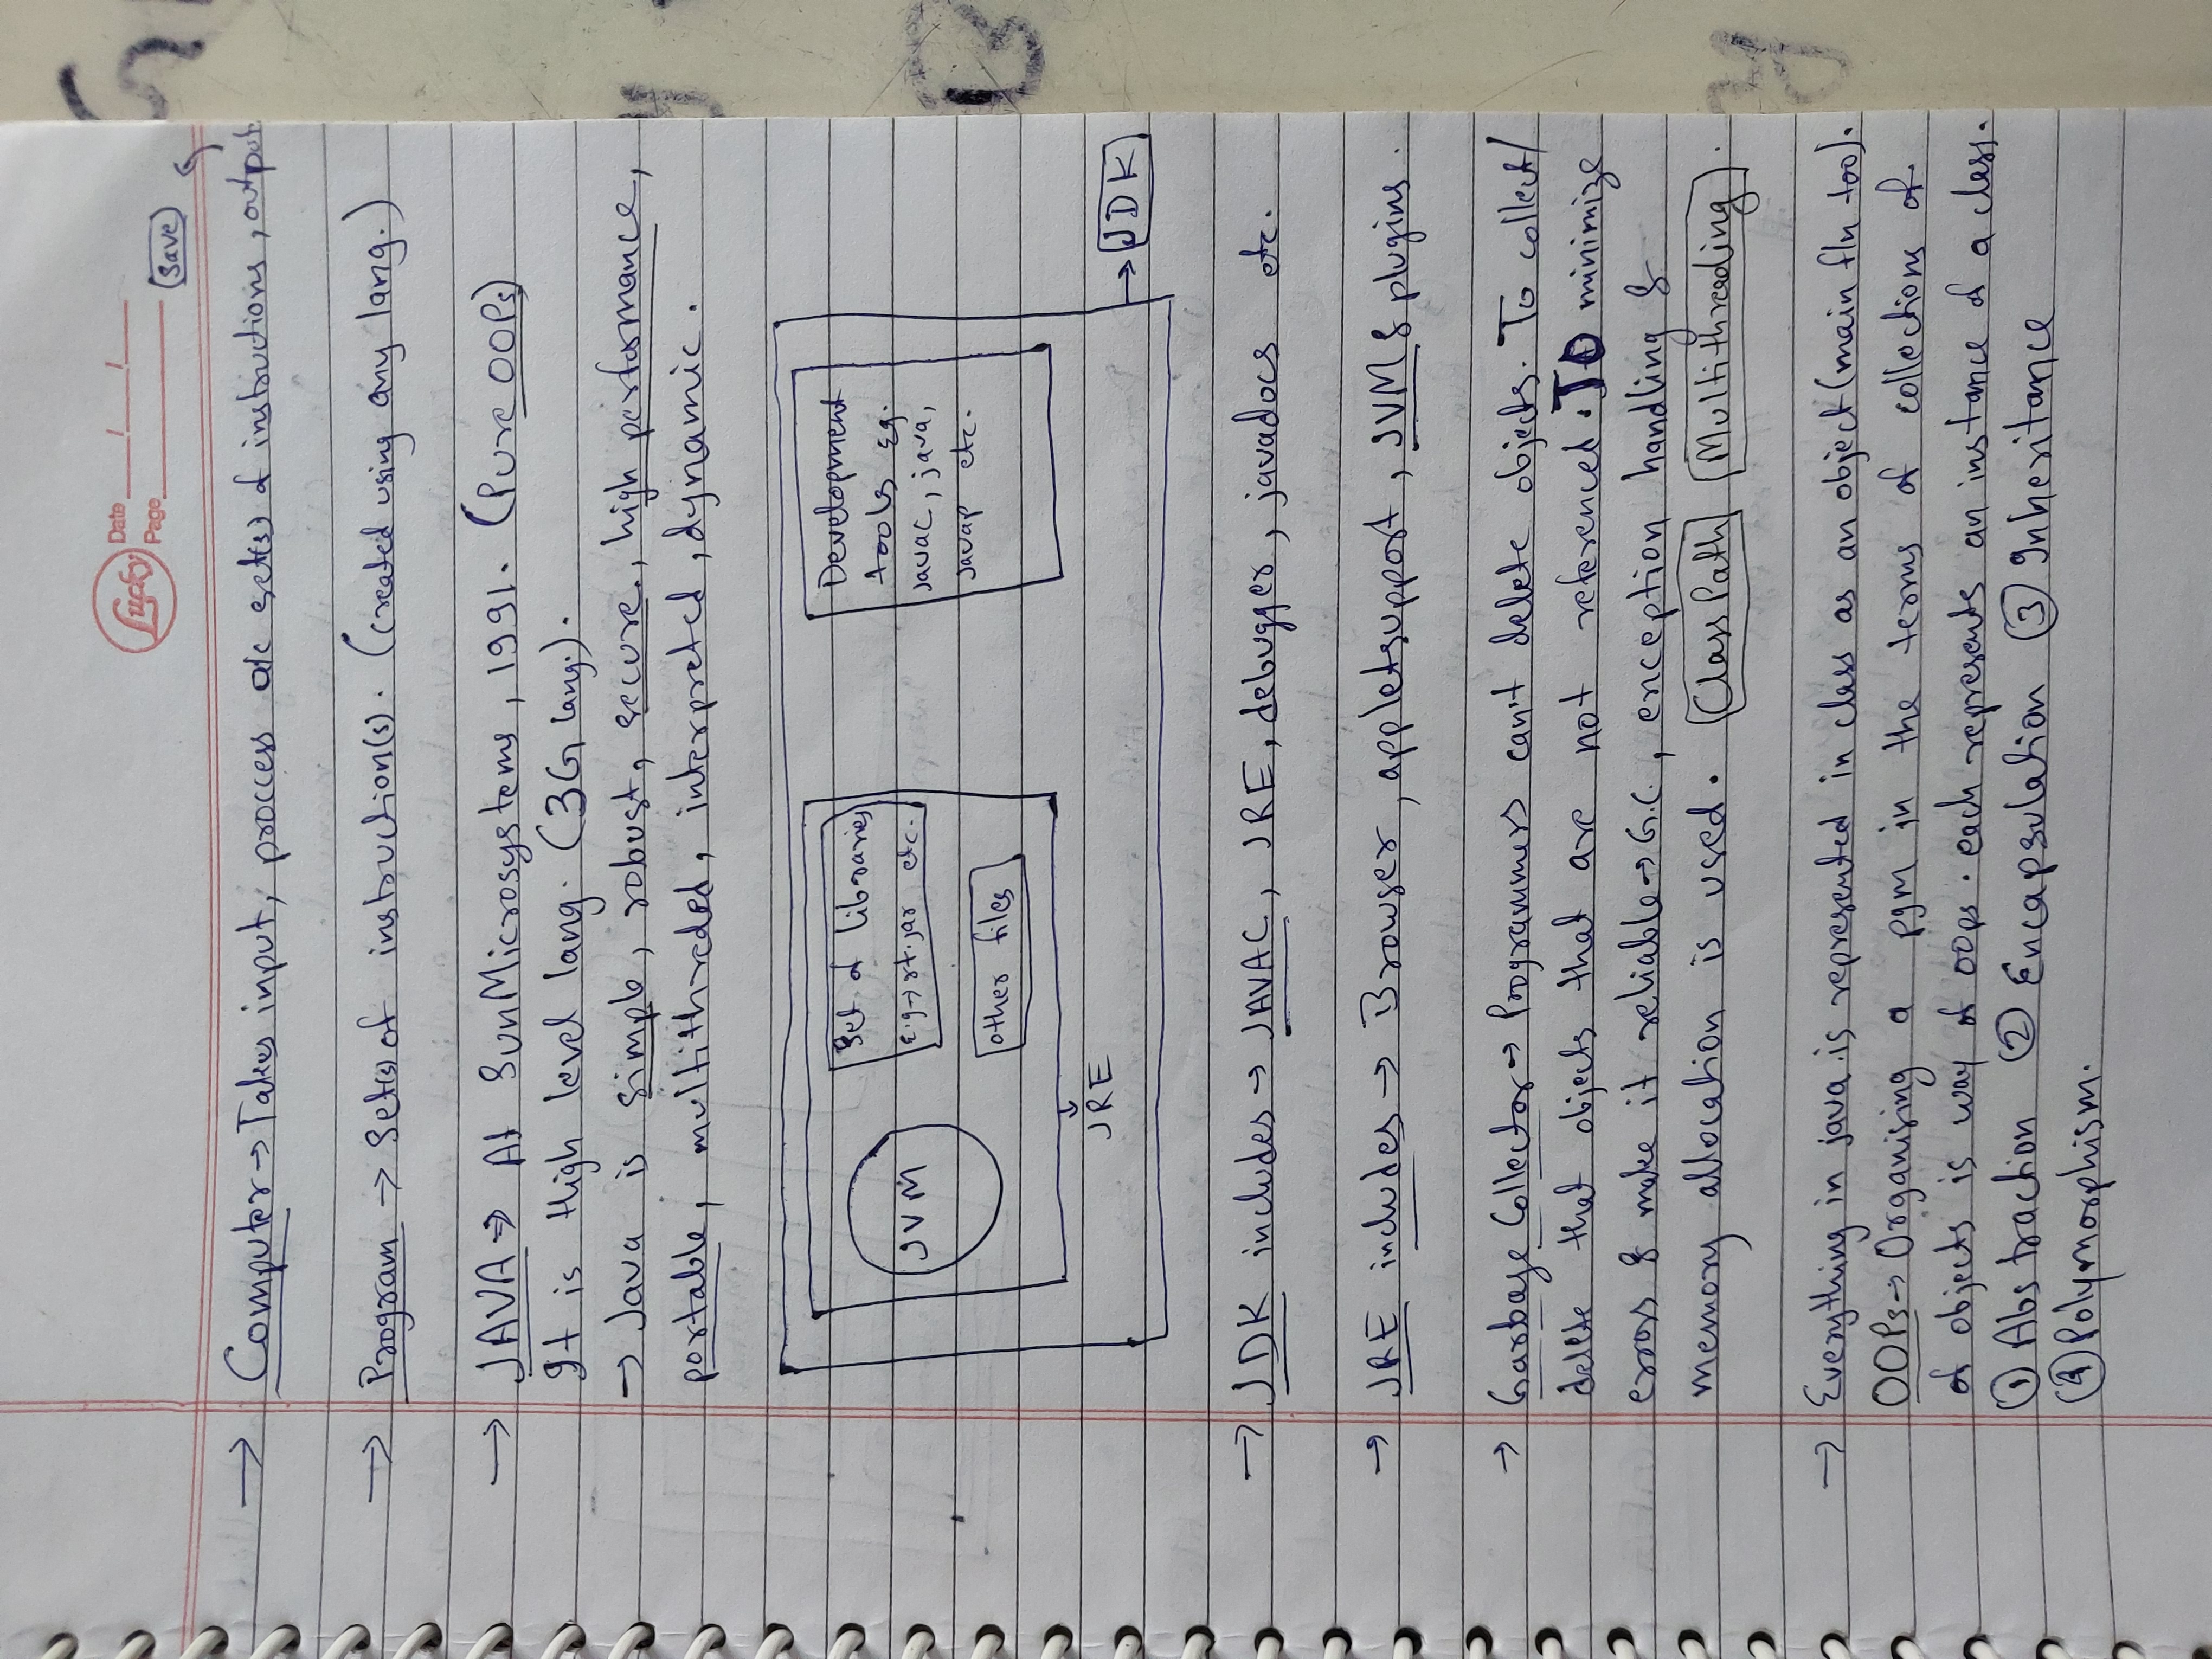 Lucky
Date / /
Page
Save
→ Computer → Takes input, proccess a/c set(s) of instructions, output
→ Program → Set(s) of instruction(s). (created using any lang.)
→ JAVA ⇒ At SunMicrosystems, 1991. (Pure OOPs)
It is High level lang. (3G lang.).
→ Java is simple, robust, secure, high performance,
portable, multithreded, interpreted, dynamic.
JVM
Set of libraries
E.g → rt.jar etc.
other files
JRE
Development
tools Eg.
javac, java,
javap etc.
→ JDK
→ JDK includes → JAVAC, JRE, debugger, javadocs etc.
→ JRE includes → Browser, appletsupport, JVM & plugins.
→ Garbage Collector → Programmers can't delete objects. To collect/
delete that objects that are not referenced. TO minimize
errors & make it reliable → G.C., exception handling &
memory allocation is used. Class Path Multithreading.
→ Everything in java is represented in class as an object (main f/n too).
OOPs → Organising a pgm in the terms of collections of
of objects is way of oops. each represents an instance of a class.
① Abstraction ② Encapsulation ③ Inheritance
④ Polymorphism.